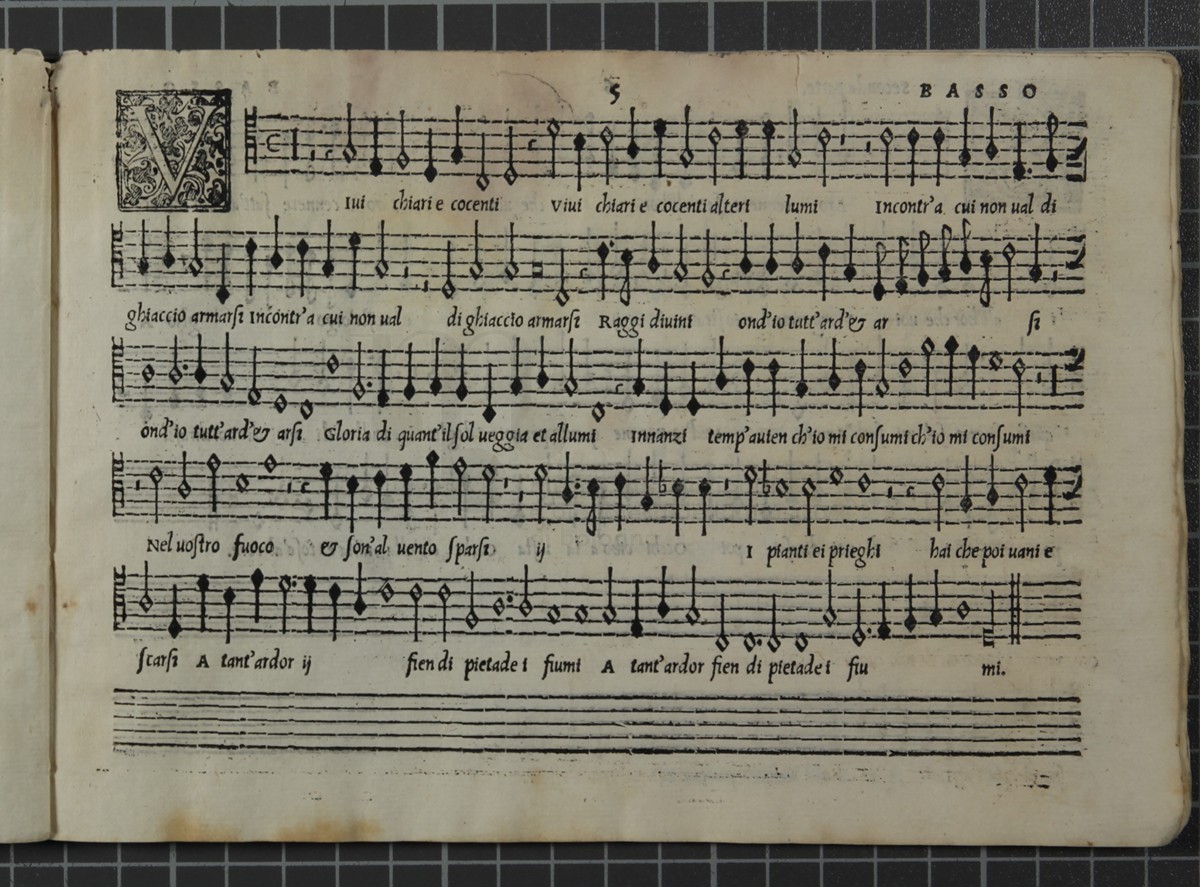 5 BASSO
VIui chiari e cocenti Viui chiari e cocenti alteri lumi Incontr'a cui non ual di
ghiaccio armarsi Incontr'a cui non ual di ghiaccio armarsi Raggi diuini ond'io tutt'ard'& ar si
ond'io tutt'ard'& arsi Gloria di quant'il sol ueggia et allumi Innanzi temp'auien ch'io mi consumi ch'io mi consumi
Nel uostro fuoco & son'al uento sparsi ij I pianti ei prieghi hai che poi uani e
scarsi A tant'ardor ij fien di pietade i fiumi A tant'ardor fien di pietade i fiu mi.